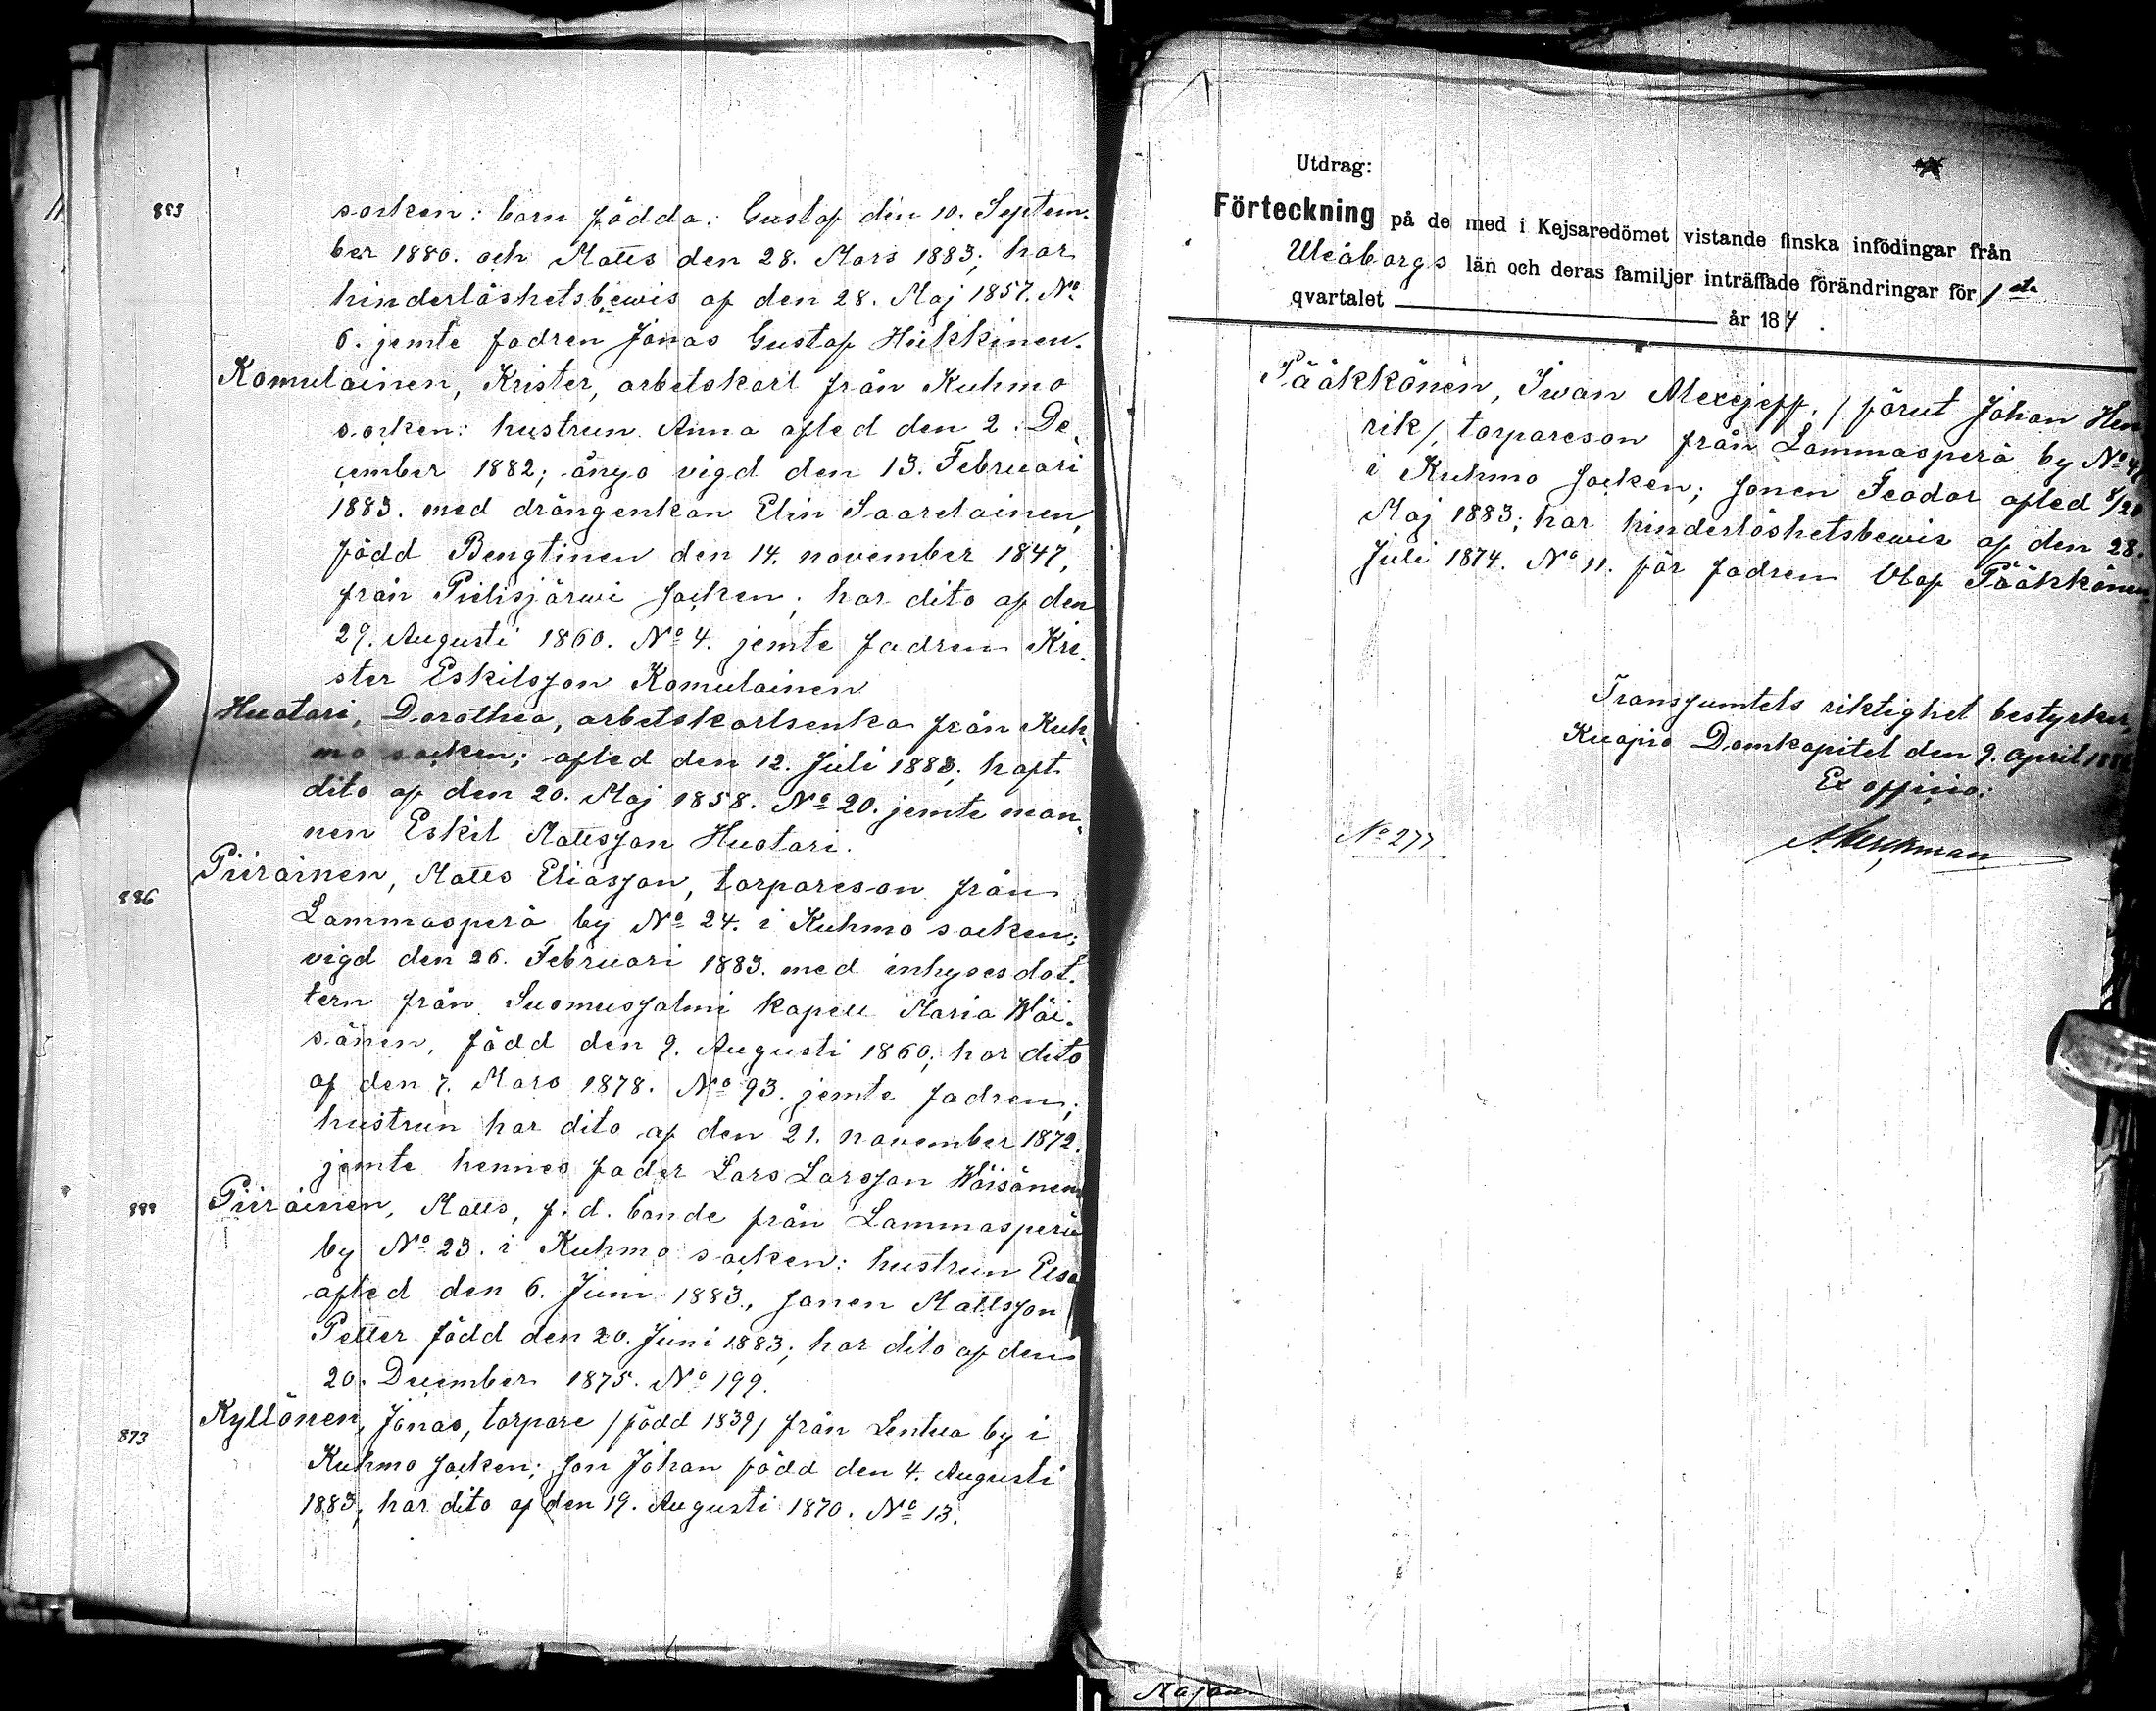 853
socken: barn födda: Gustaf den 10. Septem-
ber 1880. och Matts den 28. Mars 1883; har
hinderlöshetsbewis af den 28. Maj 1857. No
6. jemte fadren Jonas Gustaf Hukkinen.
Komulainen, Krister, arbetskarl från Kuhmo
socken: hustrun Anna afled den 2. De-
cember 1882; ånyo vigd den 13. Februari
1883. med drängenkan Elin Saarelainen,
född Bengtinen den 14. november 1847,
från Pielisjärwi socken; har dito af den
29. Augusti 1860. No 4. jemte fadren Kri-
ster Eskilsson Komulainen
Huotari, Dorothea, arbetskarlsenka från Kuh-
mo socken; afled den 12. Juli 1883; haft
dito af den 20. Maj 1858. No 20. jemte man-
nen Eskil Mattsson Huotari.
886
Piirainen, Matts Eliasson, torpareson från
Lammasperä by No 24. i Kuhmo socken;
vigd den 26. Februari 1883. med inhysesdot-
tern från Suomussalmi kapell Maria Wäi-
sänen, född den 9. Augusti 1860; har dito
af den 7. Mars 1878. No 93. jemte fadren;
hustrun har dito af den 21. november 1872.
jemte hennes fader Lars Larsson Wäisänen
888
Piirainen, Matts, f.d. bonde från Lammasperä
by No 23. i Kuhmo socken: hustrun Elsa
afled den 6. Juni 1883., sonen Mattsson
Petter född den 20. Juni 1883; har dito af den
20. December 1875. No 199.
873
Kyllönen, Jonas, torpare /född 1839/ från Lentua by i
Kuhmo socken; son Johan född den 4. Augusti
1883; har dito af den 19. Augusti 1870. No 13.
Utdrag:
Förteckning på de med i Kejsaredömet vistande finska infödingar från
Uleåborgs län och deras familjer inträffade förändringar för 1sta
qvartalet år 184.
Pääkkönen, Iwan Alexejeff. /förut Johan Hen
rik/, torpareson från Lammasperä by No 41
i Kuhmo socken; sonen Feodor afled 8/20
Maj 1883; har hinderlöshetsbewis af den 28.
Juli 1874. No 11. för fadren Olof Pääkkönen.
Transsumtets riktighet bestyrker,
Kuopio Domkapitel den 9. april
Ex officio:
No 277